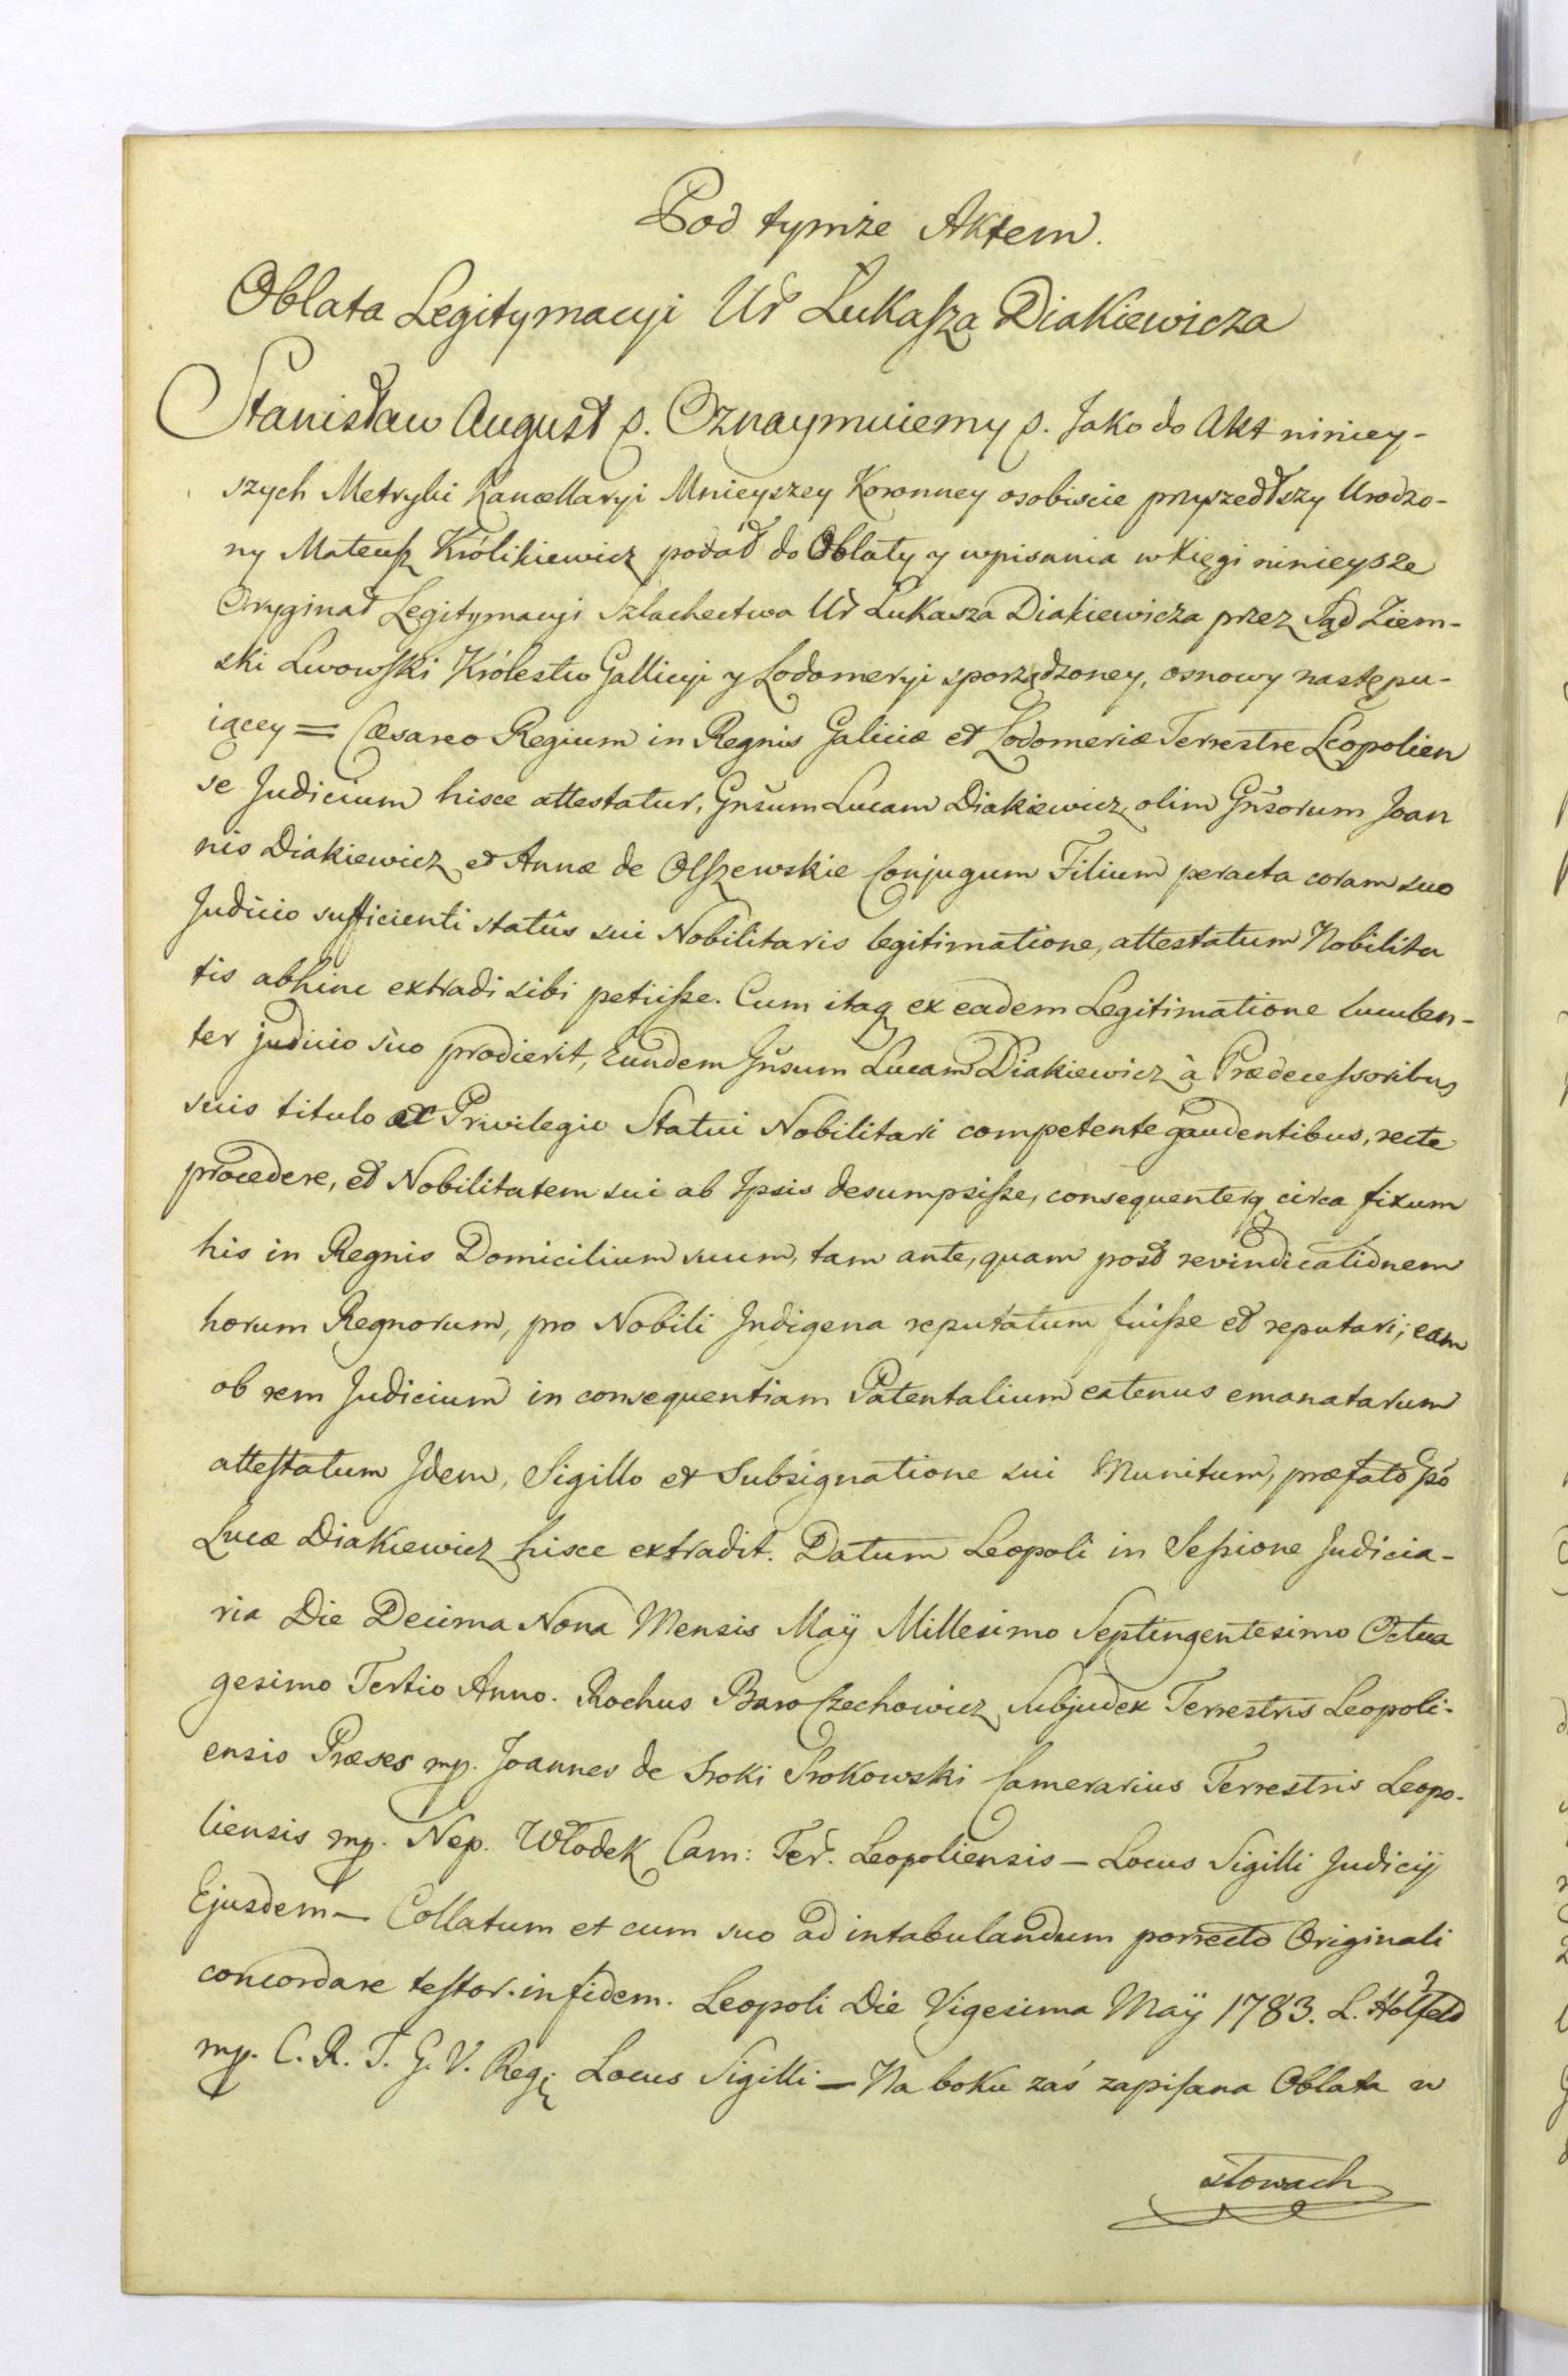 Pod tymże Aktem.
Oblata Legitymacyi Ur Łukasza Diakiewicza
Stanisław August p. Oznaymuiemy p. Jako do Akt niniey-
szych Metryki Kancellaryi Mnieyszey Koronney osobiscie przyszedłszy Urodzo-
ny Mateusz Królikiewicz podał do Oblaty y wpisania w Xięgi ninieysze
Oryginał Legitymacyi Szlachectwa Ur Łukasza Diakiewicza przez Sąd Ziem-
ski Lwowski Królestw Gallicyi y Lodomeryi sporządzoney, osnowy nastepu-
iącey = Cæsareo Regium in Regnis Galiciæ et Lodomeriæ Terrestre Leopolien
se Judicium hisce attestatur, Gnsum Lucam Diakiewicz, olim Gnsorum Joan
nis Diakiewicz et Annæ de Olszewskie Conjugum Filium peracta coram suo
Judicio sufficienti statûs sui Nobilitaris legitimatione, attestatum Nobilita
tis abhinc extradi sibi petiisse. Cum itaq ex eadem Legitimatione luculen-
ter judicio suo prodierit, Eundem Gnsum Lucam Diakiewicz à Prædecessoribus
suis titulo et Privilegio Statui Nobilitari competente gaudentibus, recte
procedere, et Nobilitatem sui ab Ipsis desumpsisse, consequenterq circa fixum
his in Regnis Domicilium suum, tam ante, quam post revindicationem
horum Regnorum, pro Nobili Indigena reputatum fuisse et reputari; eam
ob rem Judicium in consequentiam Patentalium eatenus emanatarum
attestatum Idem, Sigillo et Subsignatione sui Munitum, præfato Gso
Lucæ Diakiewicz hisce extradit. Datum Leopoli in Sessione Judicia-
ria Die Decima Nona Mensis Maÿ Millesimo Septingentesimo Octua
gesimo Tertio Anno. Rochus Baro Czechowicz Subjudex Terrestris Leopoli-
ensis Præses mp. Joannes de Sroki Srokowski Camerarius Terrestris Leopo-
liensis mp. Nep. Włodek Cam: Ter. Leopoliensis – Locus Sigilli Judicij
Ejusdem – Collatum et cum suo ad intabulandum porrecto Originali
concordare testor. in fidem. Leopoli Die Vigesima Maÿ 1783. L. Holfeld
mp. C. R. T. G. V. Reg: Locus Sigilli – Na boku zaś zapisana Oblata w
słowach